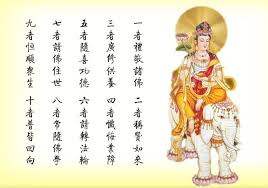 一者禮敬諸佛
二者稱讚如來
三者廣修供養
四者懺悔業障
五者隨喜功德
六者請轉法輪
七者請佛住世
八者常隨佛學
九者恒順眾生
十者普皆回向